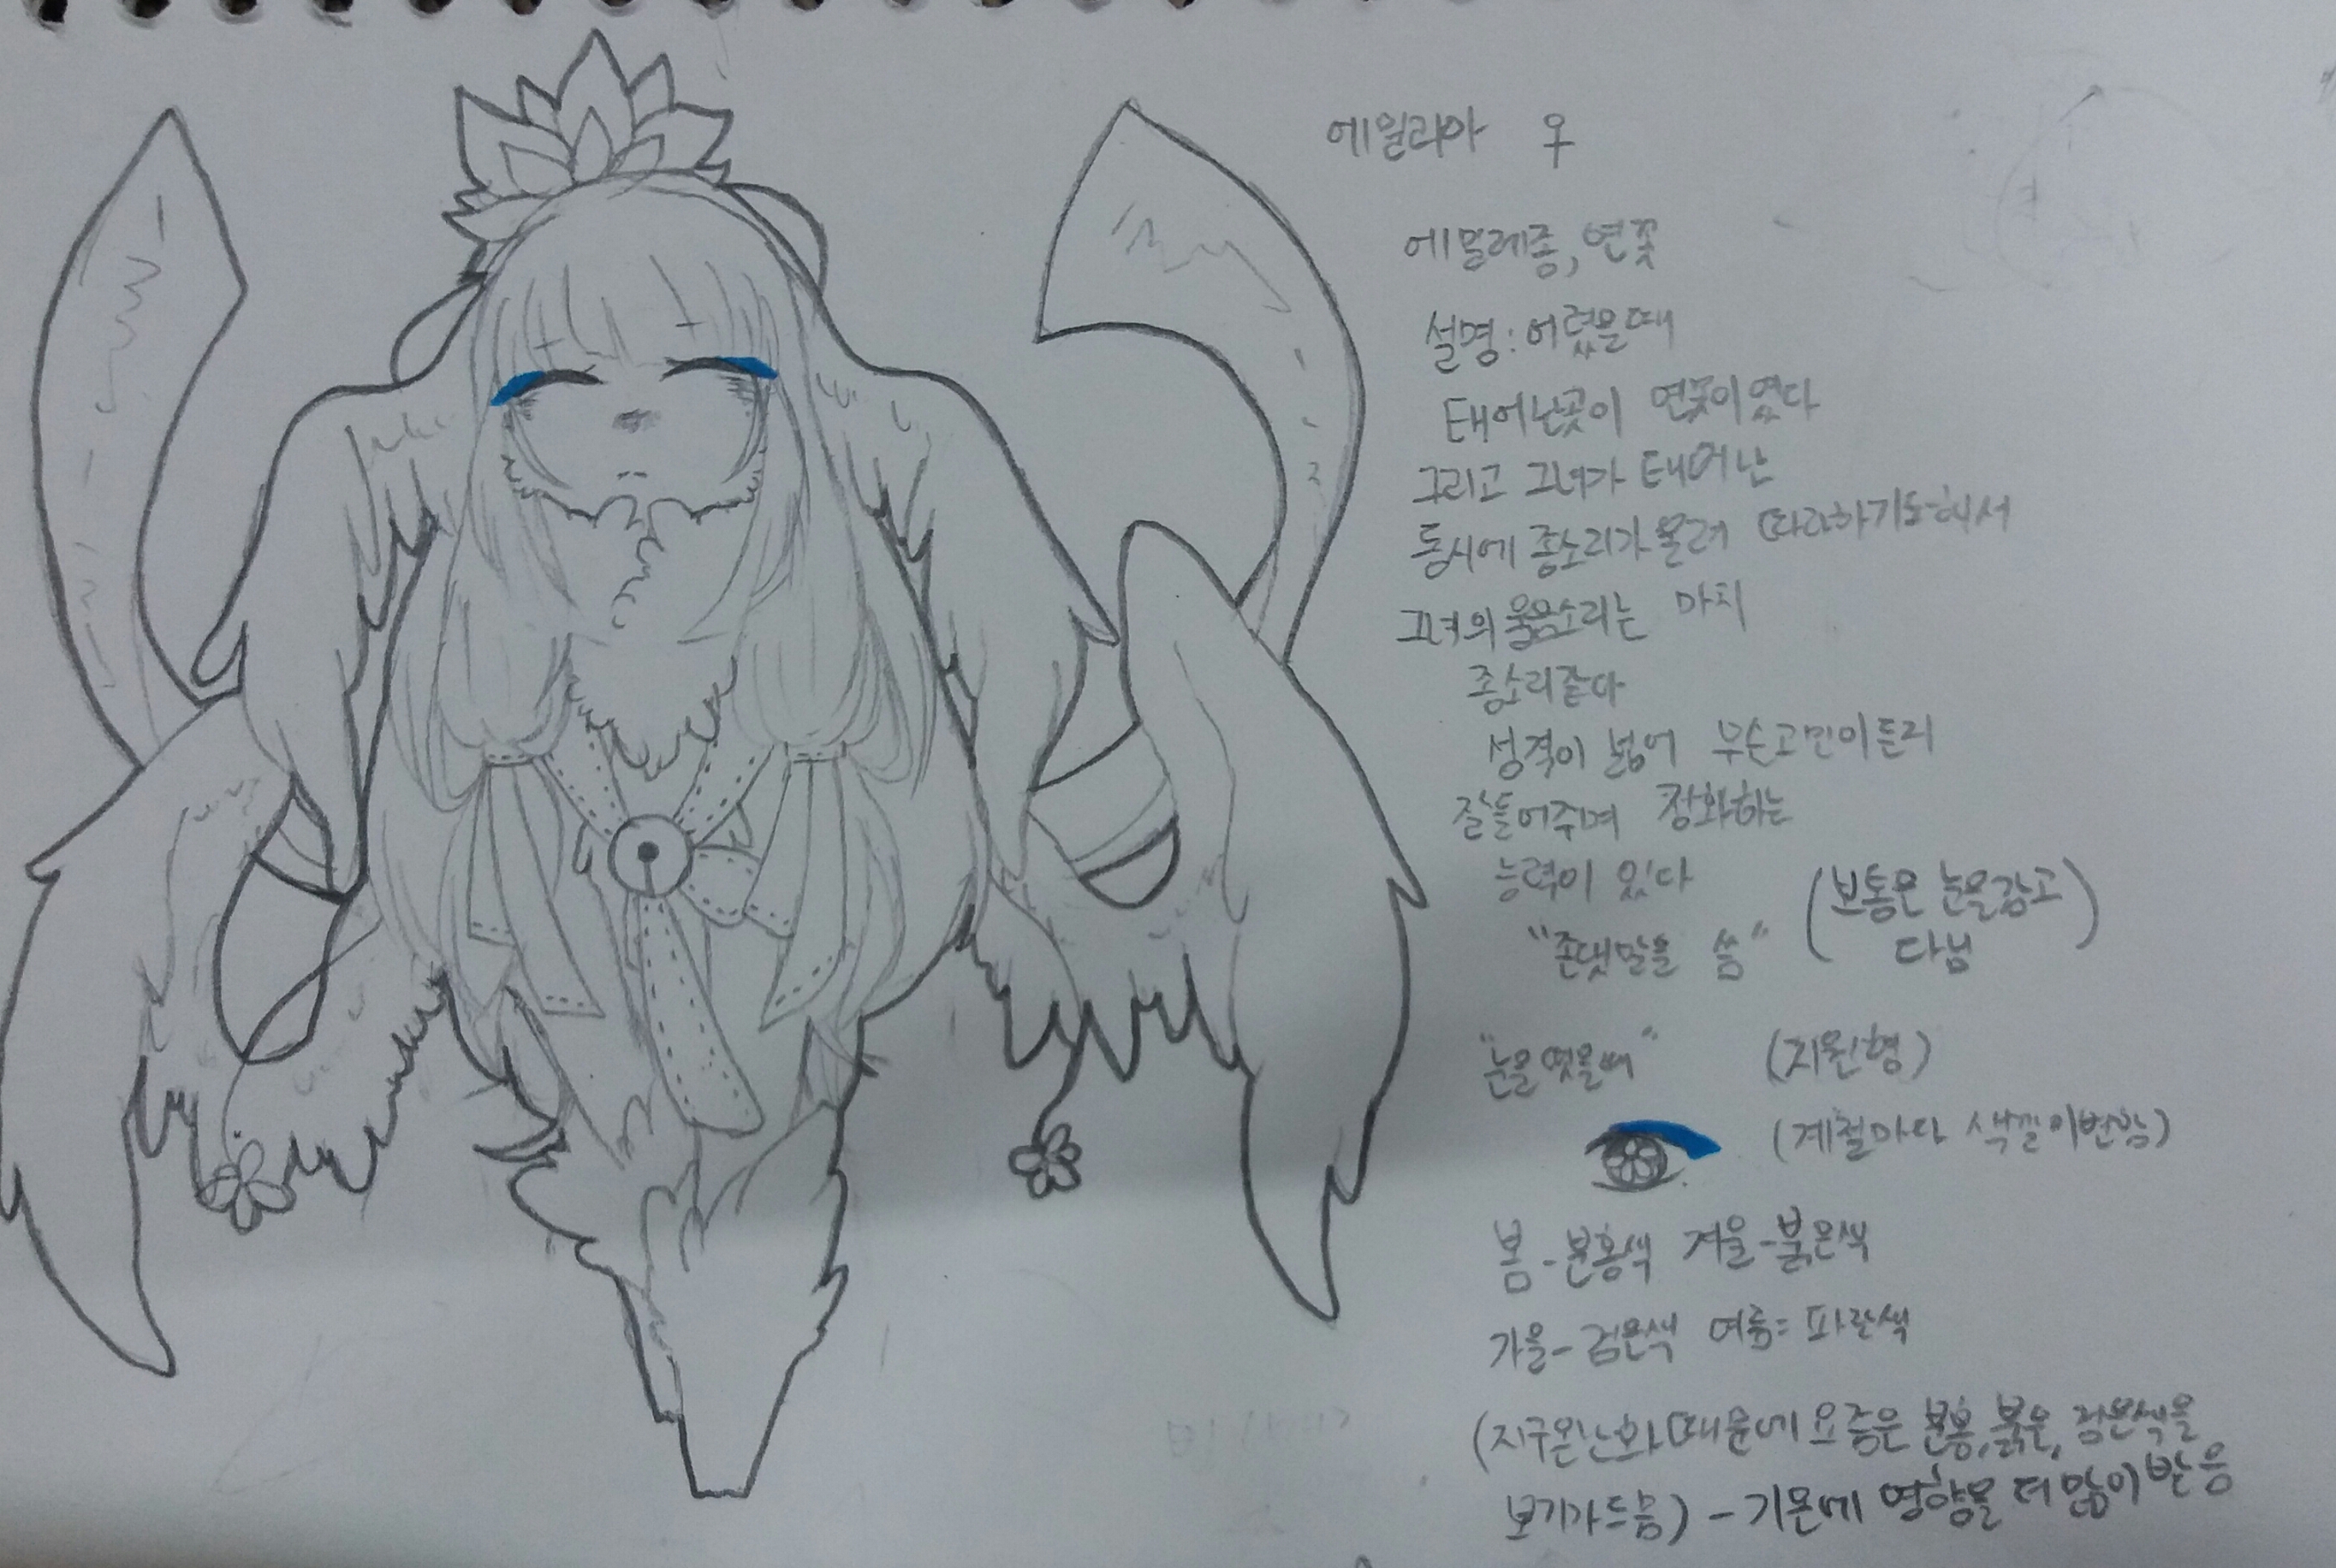 에밀리아 우
에밀레종, 연꽃
설명: 어렸을때
태어난곳이 연꽃이였다
그리고 그녀가 태어난
동시에 종소리가 울려 따라하기도해서
그녀의 울음소리는 마치
종소리같다
성격이 넓어 무슨고민이든지
잘들어주며 정화하는
능력이 있다
"존댓말을 씀" (보통은 눈을감고
다님)
"눈을떴을때" (지원형)
(계절마다 색깔이변함)
봄-분홍색 겨울-붉은색
가을-검은색 여름=파란색
(지구온난화때문에 요즘은 분홍,붉은,검은색을
보기가드뭄) - 기온에 영향을 더 많이 받음